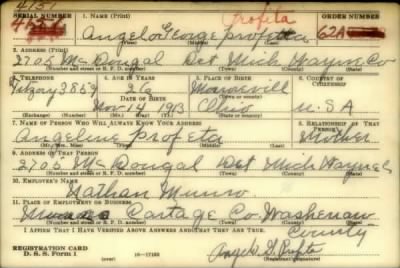 4151
SERIAL NUMBER 1. NAME (Print) Profita ORDER NUMBER
4156 Angelo George profeta 62A
2. ADDRESS (Print)
2705 McDougal Det Mich Wayne Co
(Number and street or R. F. D. number) (Town) (County) (State)
3. TELEPHONE 4. AGE IN YEARS 5. PLACE OF BIRTH 6. COUNTRY OF CITIZENSHIP
Fitzroy 3859 26 Monroevill
DATE OF BIRTH
Nov 14 1913 Ohio U.S.A
(Exchange) (Number) (Mo.) (Day) (Yr.) (Town or county) (State or country)
7. NAME OF PERSON WHO WILL ALWAYS KNOW YOUR ADDRESS 8. RELATIONSHIP OF THAT PERSON
Angeline profeta Mother
(Mr., Mrs., Miss) (First) (Middle) (Last)
9. ADDRESS OF THAT PERSON
2705 McDougal Det Mich Wayne
(Number and street or R. F. D. number) (Town) (County) (State)
10. EMPLOYER'S NAME
Nathan Munro
11. PLACE OF EMPLOYMENT OR BUSINESS
Cartage Co. Washenaw
(Number and street or R. F. D. number) (Town) (County) (State)
County
I AFFIRM THAT I HAVE VERIFIED ABOVE ANSWERS AND THAT THEY ARE TRUE.
REGISTRATION CARD
D. S. S. Form 1 16—17105 Angelo G. Profeta
(over)